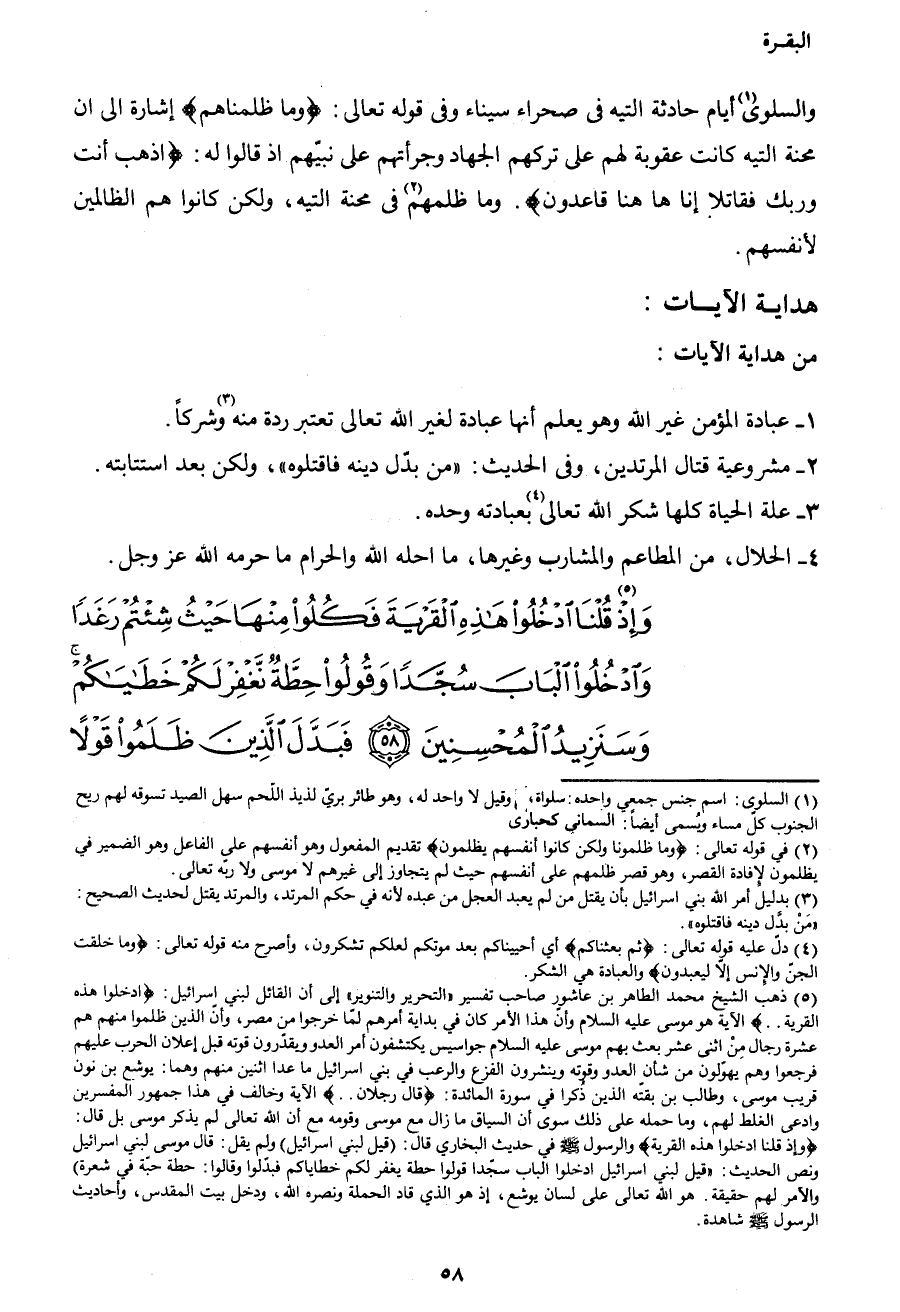 البقـرة
والسلوى(١) أيام حادثة التيه فى صحراء سيناء وفى قوله تعالى : ﴿وما ظلمناهم﴾ إشارة الى ان
محنة التيه كانت عقوبة لهم على تركهم الجهاد وجرأتهم على نبيّهم اذ قالوا له : ﴿اذهب أنت
وربك فقاتلا إنا ها هنا قاعدون﴾ . وما ظلمهم(٢) فى محنة التيه ، ولكن كانوا هم الظالمين
لأنفسهم .
هدايـة الآيـــات :
من هداية الآيات :
١ـ عبادة المؤمن غير الله وهو يعلم أنها عبادة لغير الله تعالى تعتبر ردة منه(٣) وشركاً .
٢ـ مشروعية قتال المرتدين ، وفى الحديث : «من بدّل دينه فاقتلوه» ، ولكن بعد استتابته .
٣ـ علة الحياة كلها شكر الله تعالى(٤) بعبادته وحده .
٤ـ الحلال ، من المطاعم والمشارب وغيرها ، ما احله الله والحرام ما حرمه الله عز وجل .
وَإِذْ(٥) قُلْنَا ٱدْخُلُوا۟ هَـٰذِهِ ٱلْقَرْيَةَ فَكُلُوا۟ مِنْهَا حَيْثُ شِئْتُمْ رَغَدًا
وَٱدْخُلُوا۟ ٱلْبَابَ سُجَّدًا وَقُولُوا۟ حِطَّةٌ نَّغْفِرْ لَكُمْ خَطَـٰيَـٰكُمْ ۚ
وَسَنَزِيدُ ٱلْمُحْسِنِينَ ٥٨ فَبَدَّلَ ٱلَّذِينَ ظَلَمُوا۟ قَوْلًا
(١) السلوى : اسم جنس جمعي واحده : سلواة ، وقيل لا واحد له ، وهو طائر بريّ لذيذ اللّحم سهل الصيد تسوقه لهم ريح
الجنوب كلّ مساء ويُسمى أيضاً : السماني كحبارى
(٢) في قوله تعالى : ﴿وما ظلمونا ولكن كانوا أنفسهم يظلمون﴾ تقديم المفعول وهو أنفسهم على الفاعل وهو الضمير في
يظلمون لإفادة القصر ، وهو قصر ظلمهم على أنفسهم حيث لم يتجاوز إلى غيرهم لا موسى ولا ربّه تعالى .
(٣) بدليل أمر الله بني اسرائيل بأن يقتل من لم يعبد العجل من عبده لأنه في حكم المرتد ، والمرتد يقتل لحديث الصحيح :
«مَنْ بدَّل دينه فاقتلوه» .
(٤) دلّ عليه قوله تعالى : ﴿ثم بعثناكم﴾ أي أحييناكم بعد موتكم لعلكم تشكرون ، وأصرح منه قوله تعالى : ﴿وما خلقت
الجنّ والإنس إلّا ليعبدون﴾ والعبادة هي الشكر .
(٥) ذهب الشيخ محمد الطاهر بن عاشور صاحب تفسير «التحرير والتنوير» إلى أن القائل لبني اسرائيل : ﴿ادخلوا هذه
القرية . .﴾ الآية هو موسى عليه السلام وأنّ هذا الأمر كان في بداية أمرهم لمّا خرجوا من مصر ، وأنّ الذين ظلموا منهم هم
عشرة رجال مِنْ اثنى عشر بعث بهم موسى عليه السلام جواسيس يكتشفون أمر العدو ويقدّرون قوته قبل إعلان الحرب عليهم
فرجعوا وهم يهوّلون من شأن العدو وقوته وينشرون الفزع والرعب في بني اسرائيل ما عدا اثنين منهم وهما : يوشع بن نون
قريب موسى ، وطالب بن بقنّه الذين ذُكرا في سورة المائدة : ﴿قال رجلان . .﴾ الآية وخالف في هذا جمهور المفسرين
وادعى الغلط لهم ، وما حمله على ذلك سوى أن السياق ما زال مع موسى وقومه مع أن الله تعالى لم يذكر موسى بل قال :
﴿وإذ قلنا ادخلوا هذه القرية﴾ والرسول ﷺ في حديث البخاري قال : (قيل لبني اسرائيل) ولم يقل : قال موسى لبني اسرائيل
ونص الحديث : «قيل لبني اسرائيل ادخلوا الباب سجّدا قولوا حطة يغفر لكم خطاياكم فبدّلوا وقالوا : حطة حبّة في شعرة)
والآمر لهم حقيقة . هو الله تعالى على لسان يوشع ، إذ هو الذي قاد الحملة ونصره الله ، ودخل بيت المقدس ، وأحاديث
الرسول ﷺ شاهدة .
٥٨